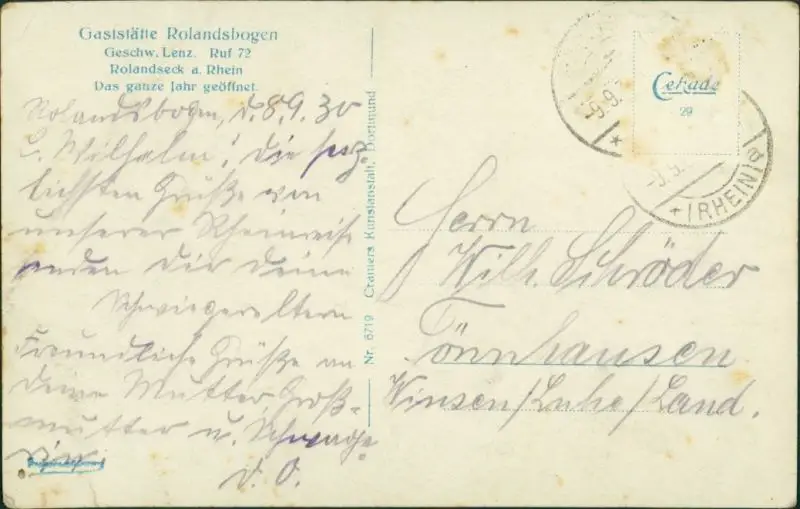 Gaststätte Rolandsbogen
Geschw. Lenz. Ruf 72
Rolandseck a. Rhein
Das ganze Jahr geöffnet.
Rolandsbogen, d. 8.9.30
L. Wilhelm! Die herz-
lichsten Grüße von
unserer Rheinreise
senden Dir deine
Schwiegereltern
Freundliche Grüße an
deine Mutter, Groß-
mutter u. Schwäge-
rin
d. O.
Nr. 6719 Cramers Kunstanstalt, Dortmund
Cekade
29
-9.9.
-9.9.
(RHEIN) a
Herrn
Wilh. Schröder
Tönnhausen
Winsen/Luhe/Land.